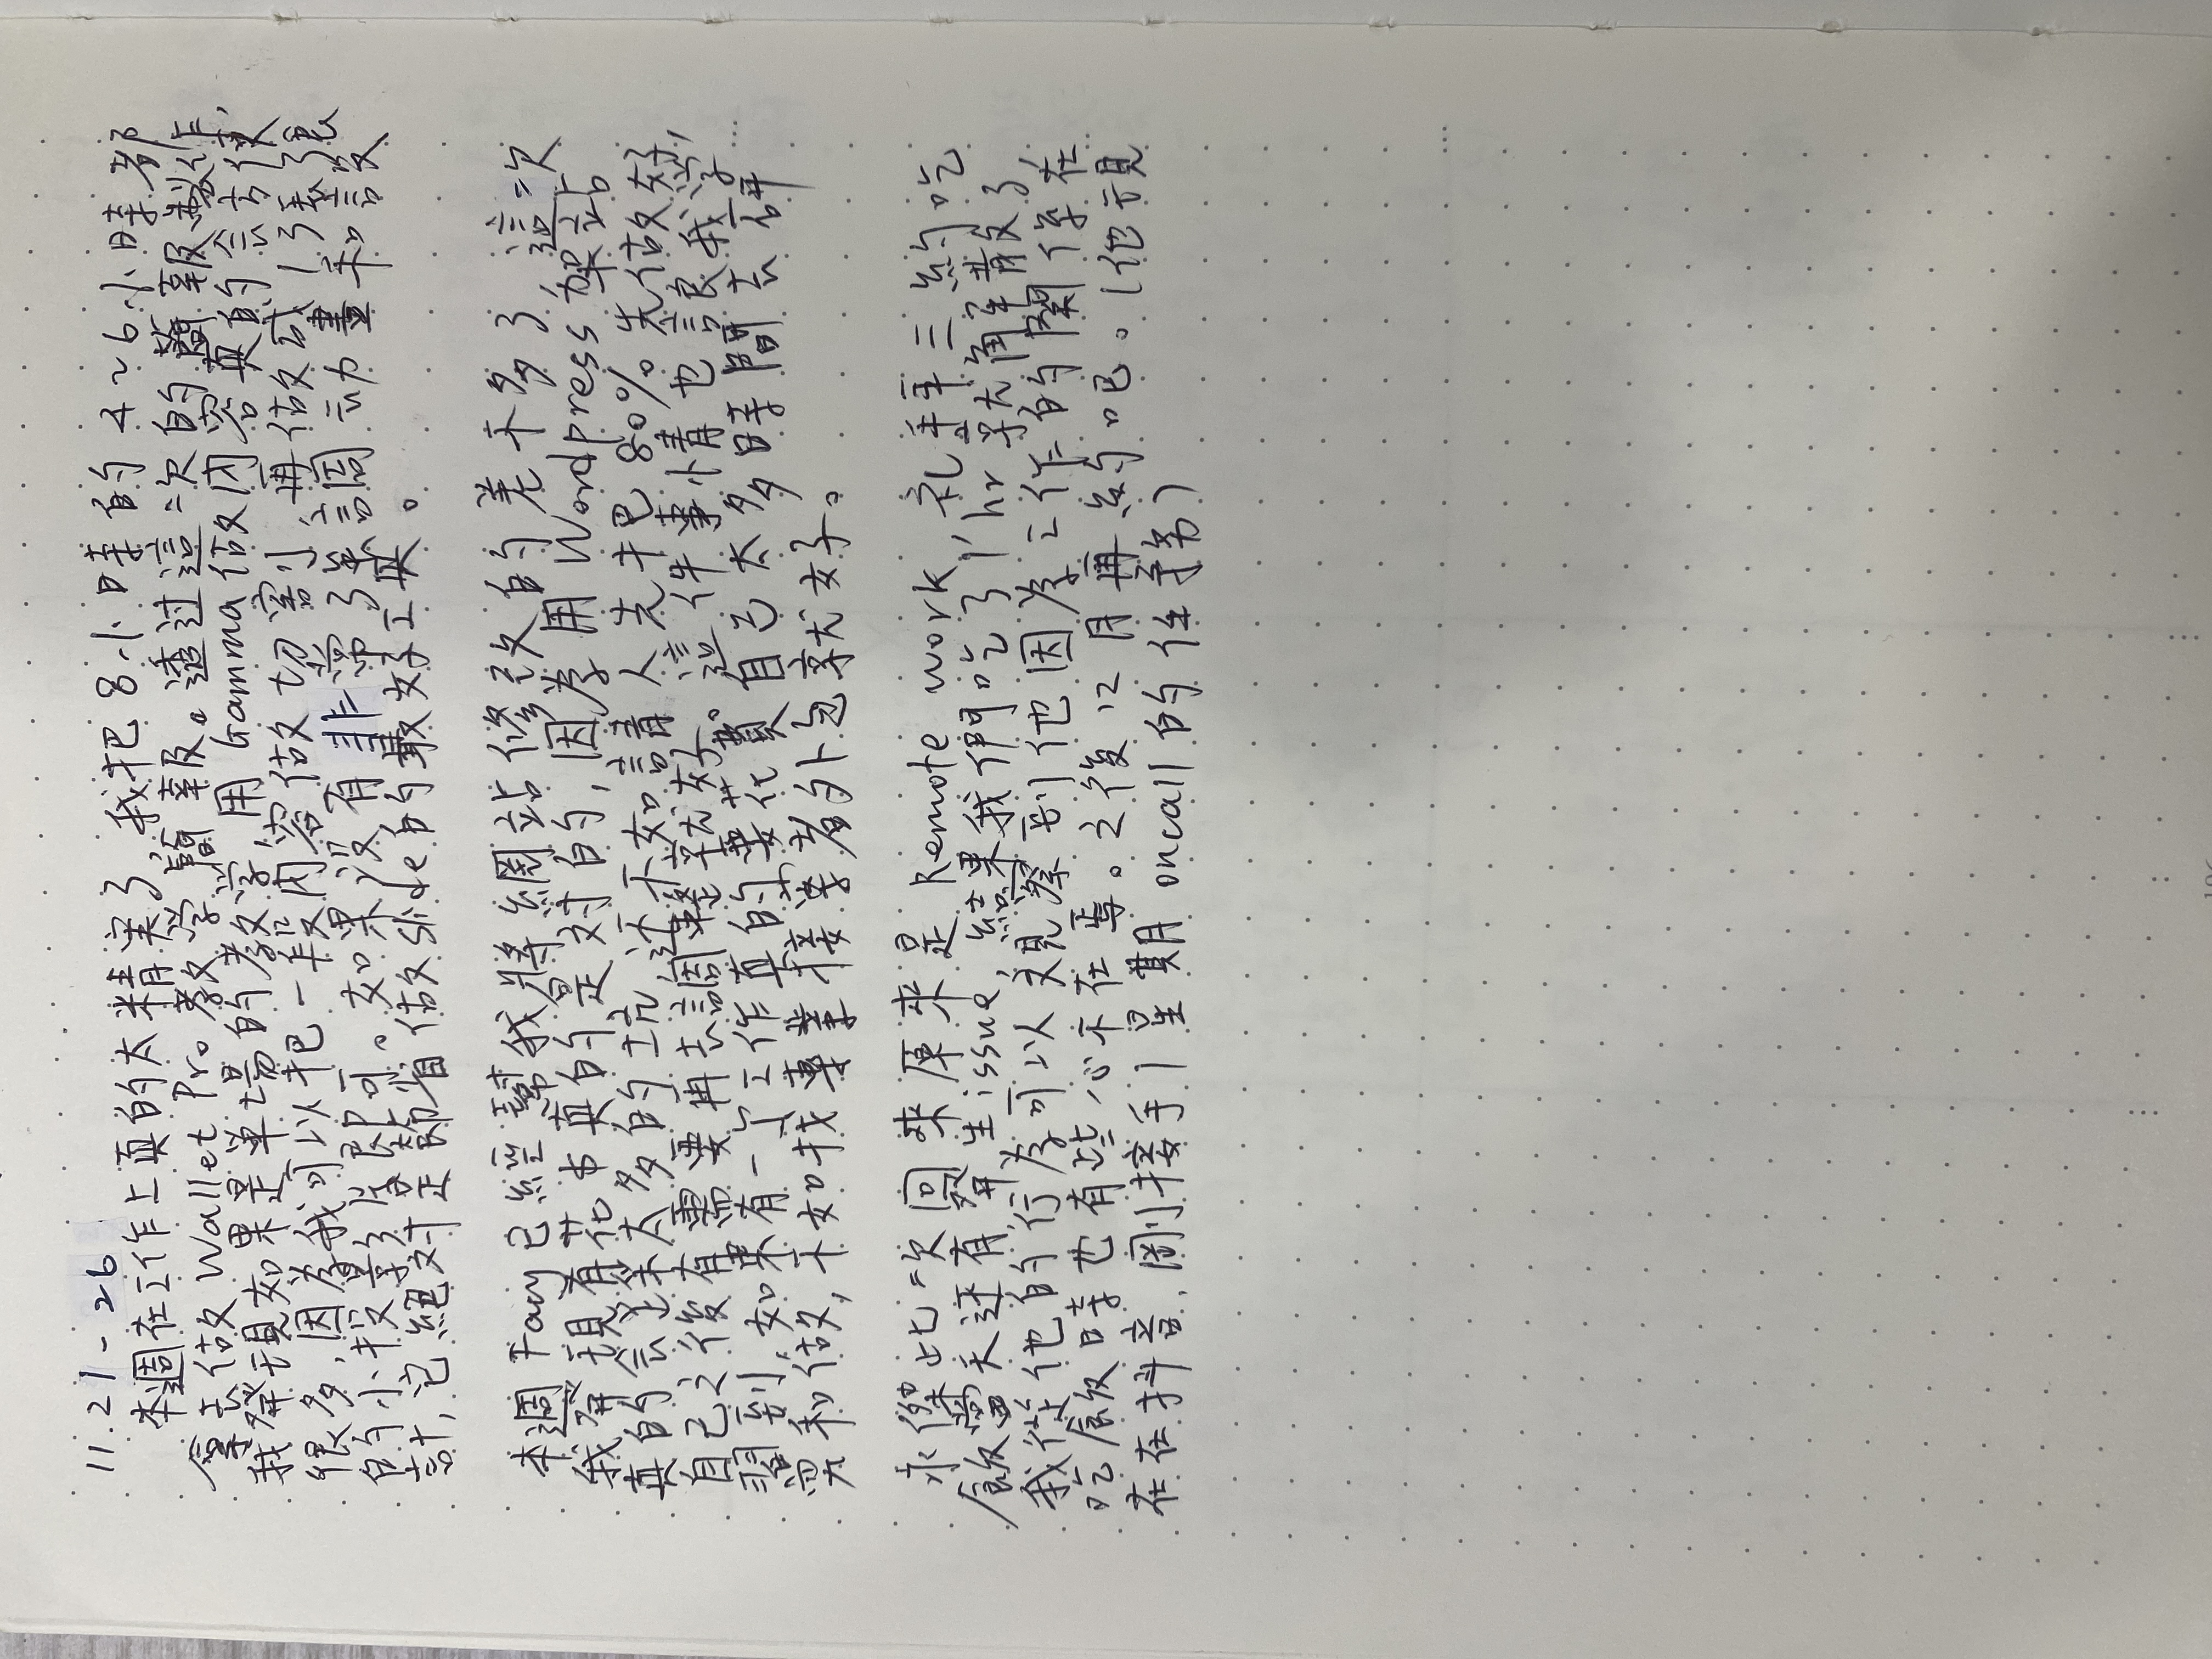 11.21-26
本週在工作上真的太精実了,我把8小時的4~6小時都
拿去做Wallet Pro教学簡報。透过這次的簡報製作,
我發現如果是单場的教学,用Gamma做内容真的会方便
很多,因為我可以把一段内容做切割,再做成1張張
的小投影片即可。如果沒有非常強調动畫和設
計,它絕対是節省做slide的最好工具。
本週Facy已經幫我將網站修改的差不多了,這次
我發現有花真的是対的,因為用Wordpress架站
真的会踩太多的坑,还不如請人先把80%先做好,
自己之後有需要再去調整就好。這件事情也讓我学
習到,如果有一个工作真的要花費自己太多時間去研
究和做,不如找專業接案者外包就好。
永傑此次回來原來是Remote work,礼拜三約吃
飯當天还有發生issue,結果我們吃了1hr就解散了,
我從他的行為可以观察到他因為工作的關係在
吃飯時也有些心不在焉。之後12月再約吧。(他現
在在抖音,剛接手1星期oncall的任務)